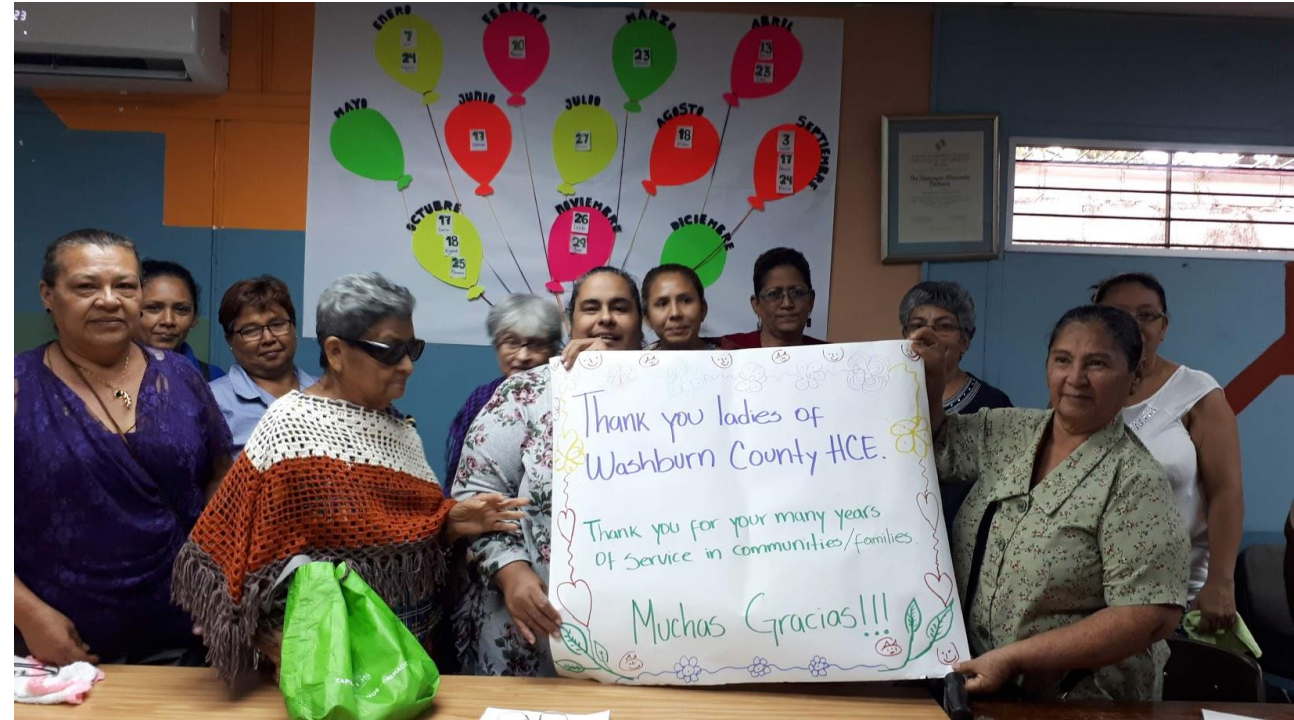 23
ENERO
7
24
FEBRERO
20
MARZO
23
ABRIL
13
23
MAYO
JUNIO
17
JULIO
27
AGOSTO
18
SEPTIEMBRE
3
17
24
OCTUBRE
17
18
25
NOVIEMBRE
26
29
DICIEMBRE
Thank you ladies of
Washburn County HCE.
Thank you for your many years
of service in communities/families.
Muchas Gracias!!!